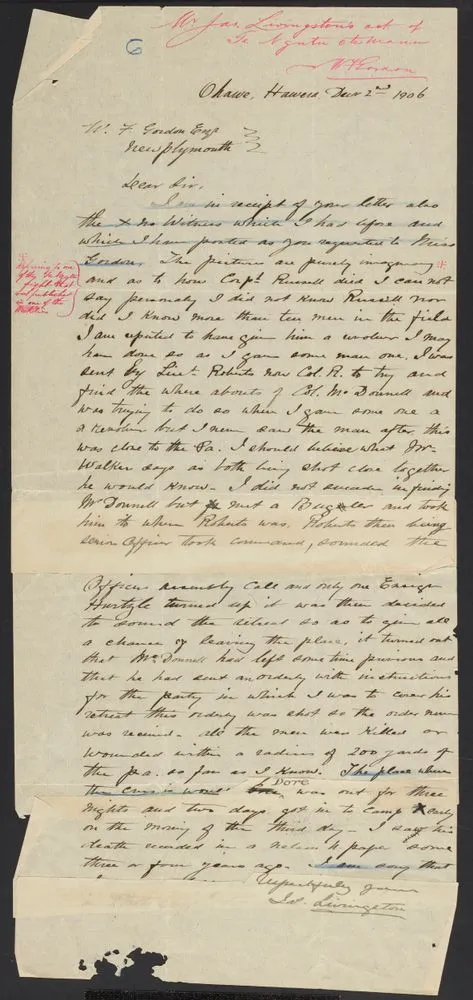 Mr Jas Livingston's act of
Te Ngutu ote manu
W F Gordon
6
Ohawe, Hawera Decr 2nd 1906
W. F. Gordon Esqr
New Plymouth
Dear Sir,
I am in receipt of your letter also
the x Witness which I has before and
which I have posted as you requested to Miss
Gordon. The pictures are purely imaginary
and as to how Corpl Russell died I can not
say personaly I did not know Russell nor
did I know more than ten men in the field
I am reputed to have given him a revolver I may
have done so as I gave some man one, I was
sent by Lieut Roberts now Col. R. to try and
find the where abouts of Col. McDonnell and
was trying to do so when I gave some one a
a Revolver but I never saw the man after this
was close to the Pa. I should believe what Mr
Walker says as both being shot close together
he would know - I did not succeed in finding
McDonnell but met a Bugler and took
him to where Roberts was. Roberts then being
senior Officer took command, sounded the
Officers assembly call and only one Ensign
Hurtzle turned up it was then decided
to sound the retreat so as to give all
a chance of leaving the place, it turned out
that McDonnell had left some time previous and
that he had sent an orderly with instructions
for the party in which I was to cover his
retreat this orderly was shot so the order never
was received - all the men was killed or
wounded within a radius of 200 yards of
the pa. so far as I know. The place where
the
Dore
was out for three
nights and two days got in to camp early
on the morning of the third day - I saw his
death recorded in a paper some
three or four years ago. I am sorry that
respectfully yours
Jas. Livingston
referring to one
of the
fight that
was published
in one of the